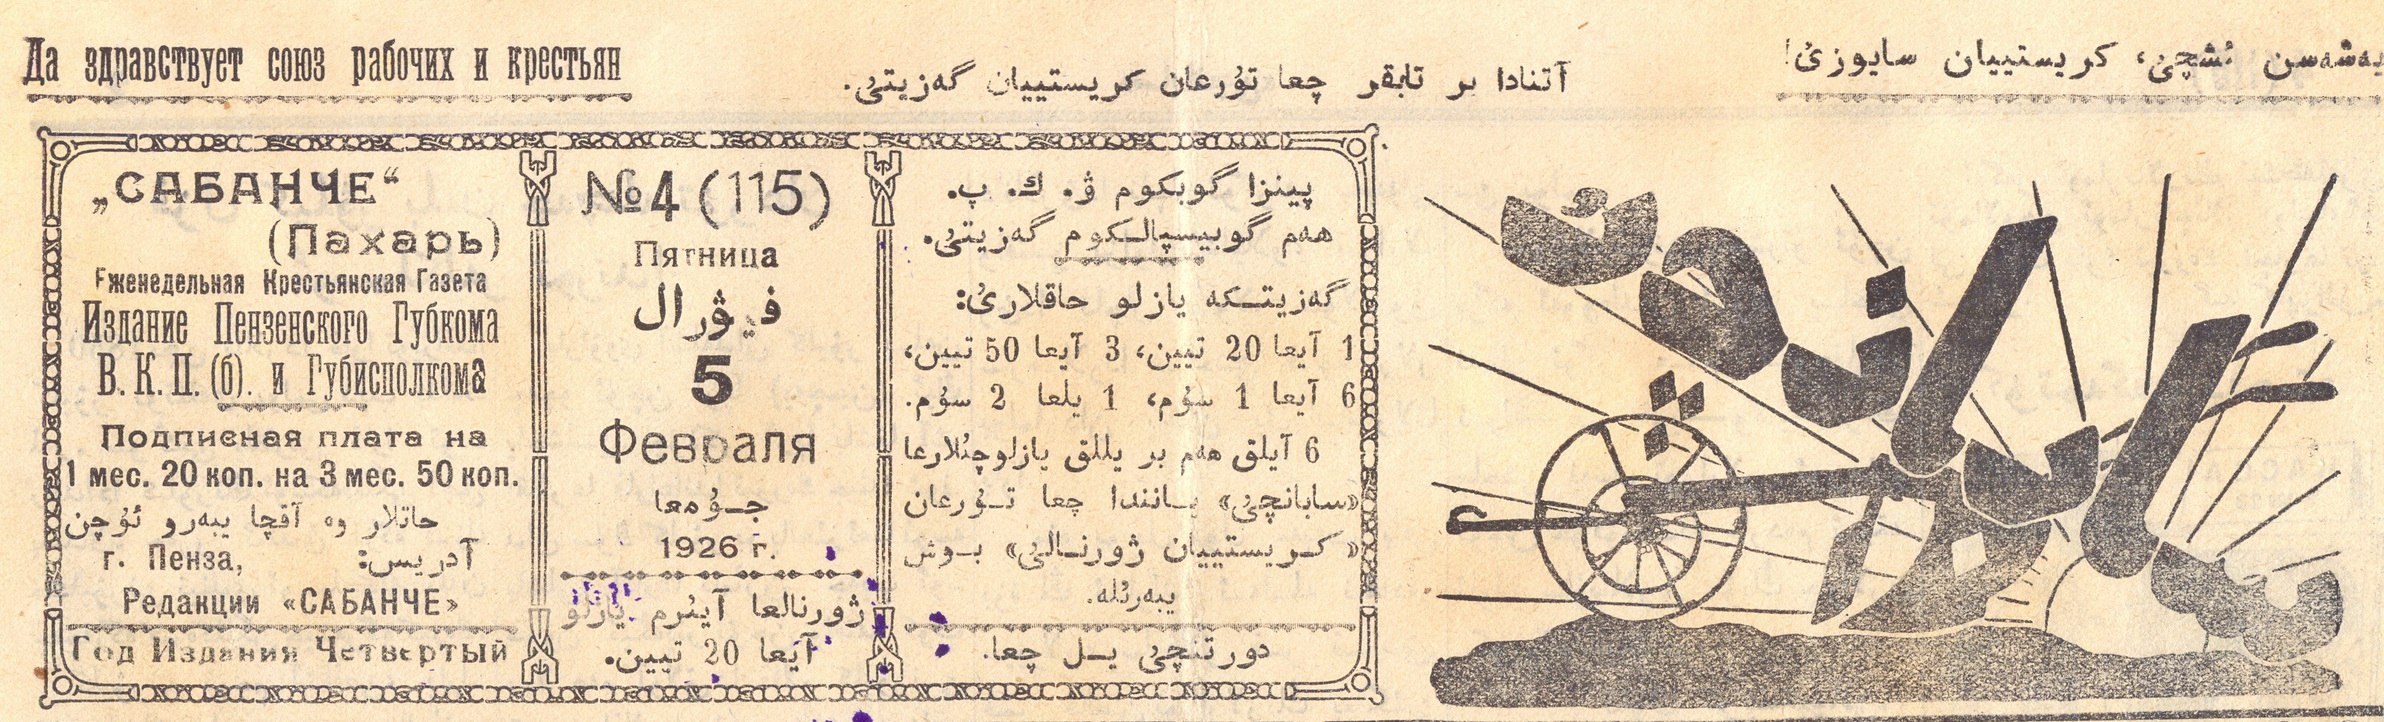 Да здравствует союз рабочих и крестьян
آتنادا بر تابقر چعا تۇرعان كريستييان گەزيتىُ.
يەشەسن ئشچىُ، كريستييان سايوزىُ!
„САБАНЧЕ“
(Пахарь)
Еженедельная Крестьянская Газета
Издание Пензенского Губкома
В. К. П. (б). и Губисполкома
Подписная плата на
1 мес. 20 коп. на 3 мес. 50 коп.
حاتلار وە آقچا يبەرو ئۇچن
آدريس:
г. Пенза,
Редакции «САБАНЧЕ»
Год Издания Четвертый
№4 (115)
Пятница
فيۋرال
5
Февраля
جۇمعا
1926 г.
ژورنالعا آيئرم يازلو
آيعا 20 تيين.
پينزا گوبكوم ۋ. ك. پ.
هەم گوبيسپالكوم گەزيتىُ.
گەزيتكە يازلو حاقلارىُ:
1 آيعا 20 تيين، 3 آيعا 50 تيين،
6 آيعا 1 سۇم، 1 يلعا 2 سۇم.
6 آيلق هەم بر يللق يازلوچئلارعا
«سابانچىُ» يانندا چعا تۇرعان
«كريستييان ژورنالىُ» بوش
يبەرئلە.
دورتنچىُ يل چعا.
سابانچىُ